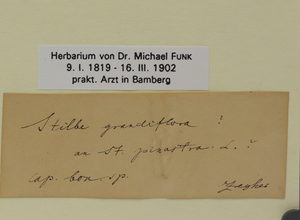 Herbarium von Dr. Michael FUNK
9. I. 1819 - 16. III. 1902
prakt. Arzt in Bamberg
Stilbe grandiflora ?
an St. pinastra. L. ?
Cap. bon. sp.
Zeyher